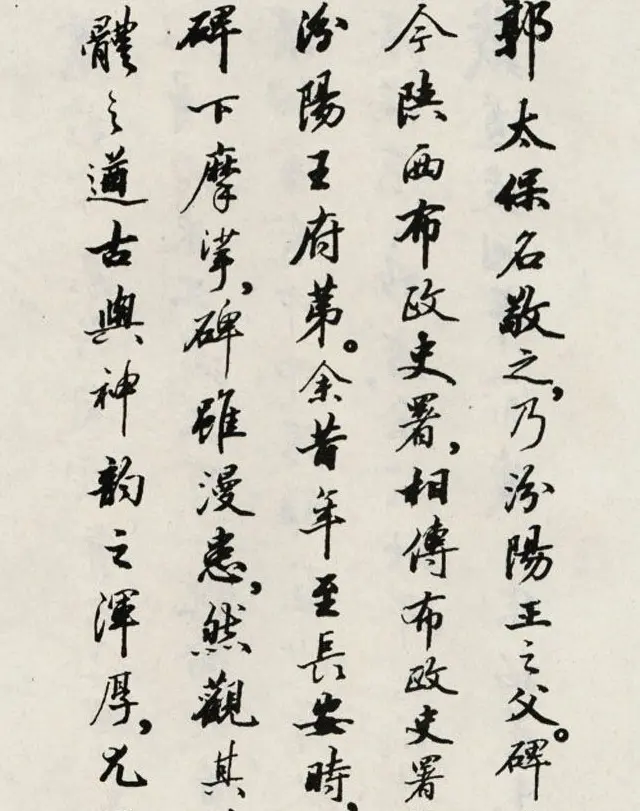 郭太保名敬之,乃汾陽王之父。碑
今陕西布政史署,相傳布政史署
汾陽王府第。余昔年至長安時,
碑下摩挲,碑雖漫患,然觀其
體之遒古與神韵之渾厚,尤